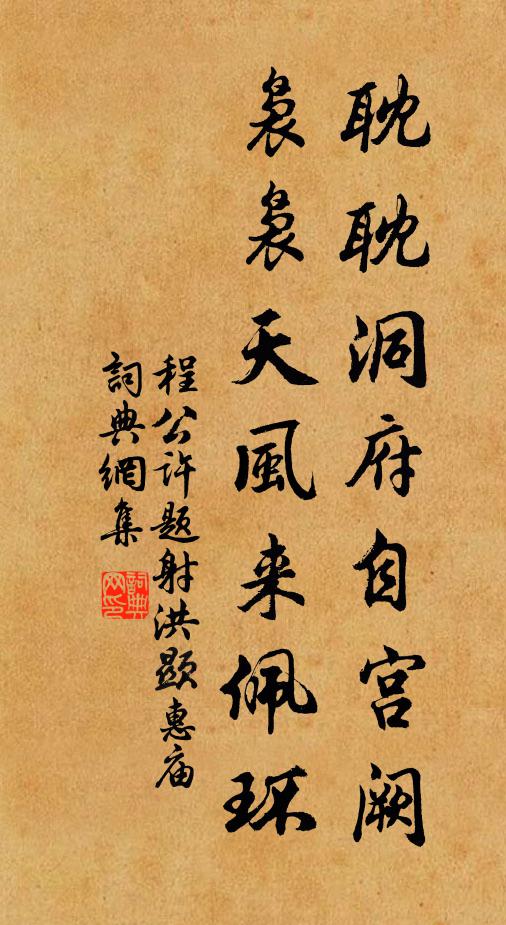 耽耽洞府自宫阙
袅袅天風来佩环
程公许题射洪显惠庙
詞典網集
詞典网印